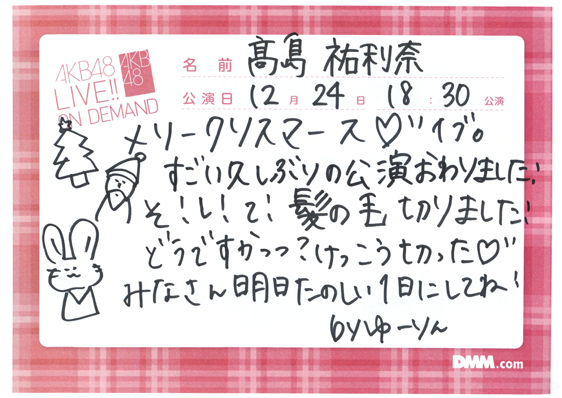 AKB48
LIVE!!
ON DEMAND
AKB
48
名前 髙島 祐利奈
公演日 12月24日 18:30公演
メリークリスマース♡イブ。
すごい久しぶりの公演おわりました!
そ!し!て! 髪の毛切りました!
どうですかっっ?けっこう切った♡
みなさん明日たのしい1日にしてね!
byゆーりん
DMM.com